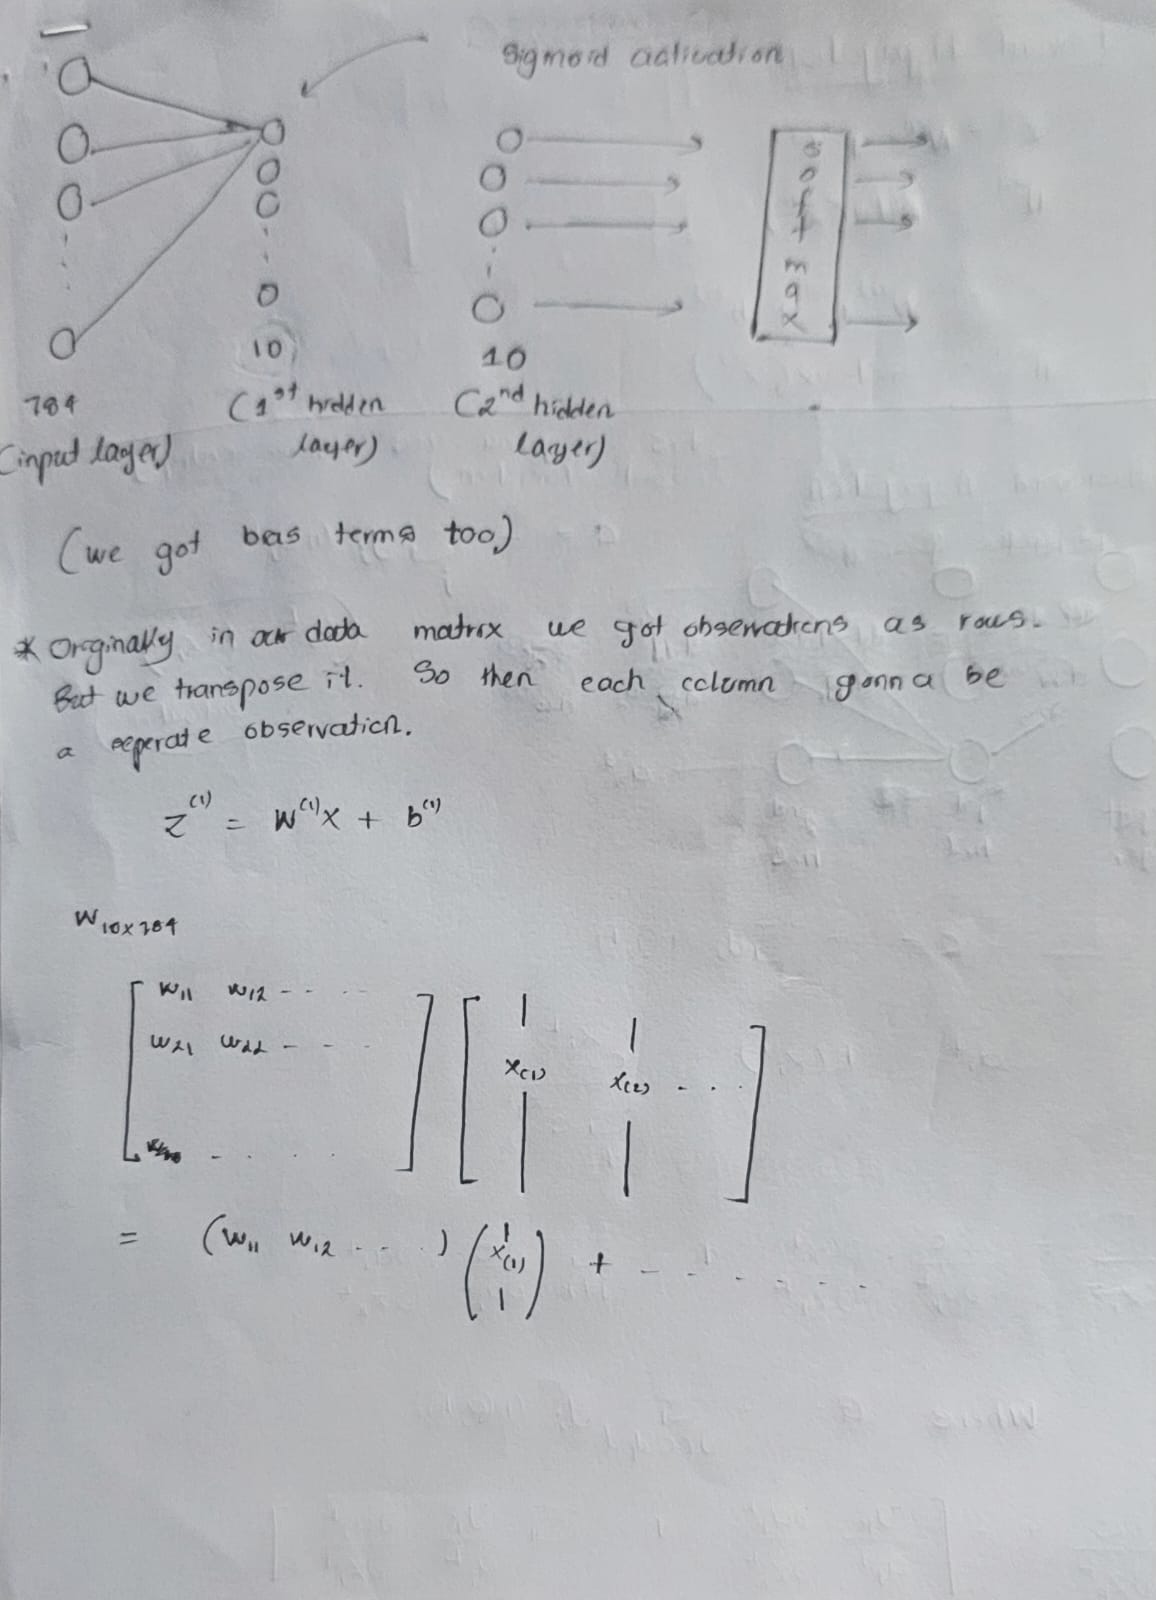 Sigmoid activation
softmax
784
10
10
(input layer)
(1st hidden layer)
(2nd hidden layer)
(we got beis terms too)
* Orginally in our data matrix we got observations as rows.
But we transpose it. So then each column gonna be
a seperate observation.
z⁽¹⁾ = W⁽¹⁾X + b⁽¹⁾
W₁₀ₓ₇₈₄
[ w₁₁ w₁₂ - - - - ] [ | | ]
w₂₁ w₂₂ - - - x₍₁₎ x₍₂₎ - . .
- . . . . | |
= (w₁₁ w₁₂ - - . ) ( | x₍₁₎ | ) + - - - . - . .